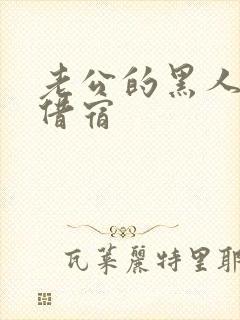 老公的黑人
借宿
瓦莱丽特里耶